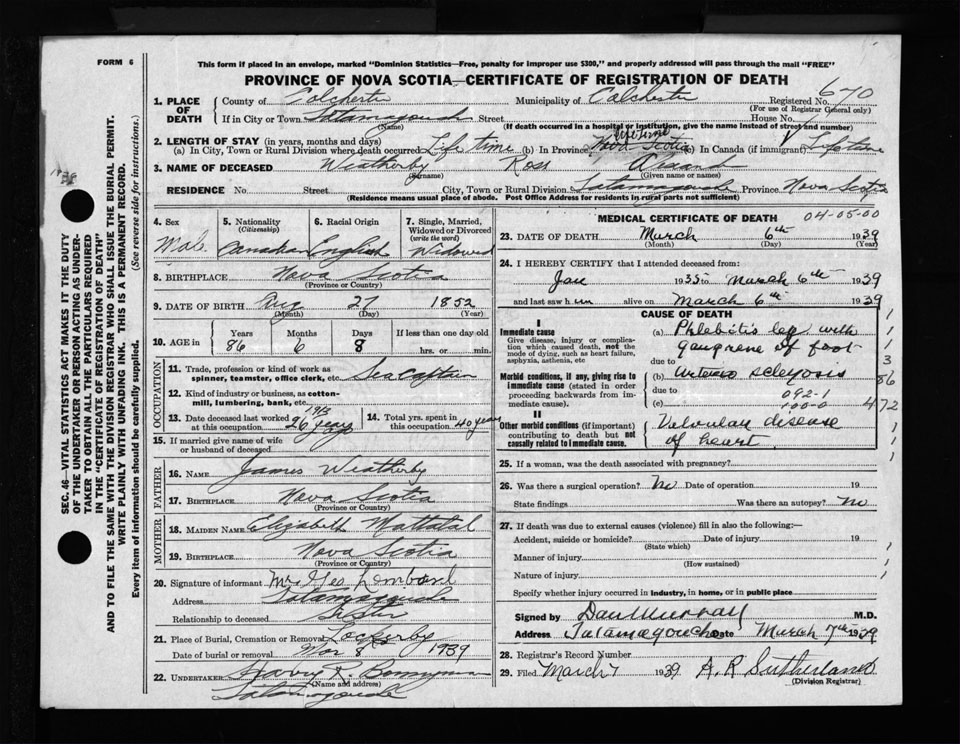 FORM 6
This form if placed in an envelope, marked "Dominion Statistics—Free, penalty for improper use $300," and properly addressed will pass through the mail "FREE"
PROVINCE OF NOVA SCOTIA—CERTIFICATE OF REGISTRATION OF DEATH
670
1. PLACE OF DEATH
County of Colchester Municipality of Colchester Registered No.
(For use of Registrar General only)
If in City or Town Tatamagouche Street House No.
(Name) (If death occurred in a hospital or institution, give the name instead of street and number)
2. LENGTH OF STAY (in years, months and days)
(a) In City, Town or Rural Division where death occurred Life time (b) In Province life time Nova Scotia (c) In Canada (if immigrant) Lifetime
3. NAME OF DECEASED Weatherby Ross
(Surname) (Given name or names)
RESIDENCE No. Street City, Town or Rural Division Tatamagouche Province Nova Scotia
(Residence means usual place of abode. Post Office Address for residents in rural parts not sufficient)
4. Sex Male
5. Nationality (Citizenship) Canadian
6. Racial Origin English
7. Single, Married, Widowed or Divorced (write the word) Widowed
8. BIRTHPLACE Nova Scotia
(Province or Country)
9. DATE OF BIRTH Aug 27 1852
(Month) (Day) (Year)
10. AGE in Years Months Days If less than one day old
86 6 8 hrs. or min.
OCCUPATION
11. Trade, profession or kind of work as spinner, teamster, office clerk, etc. Sea Captain
12. Kind of industry or business, as cotton-mill, lumbering, bank, etc.
13. Date deceased last worked at this occupation 1913 26 years
14. Total yrs. spent in this occupation 40 years
15. If married give name of wife or husband of deceased
FATHER
16. NAME James Weatherby
17. BIRTHPLACE Nova Scotia
(Province or Country)
MOTHER
18. MAIDEN NAME Elizabeth
19. BIRTHPLACE Nova Scotia
(Province or Country)
20. Signature of informant Mrs Geo Lombard
Address Tatamagouche
Relationship to deceased Sister
21. Place of Burial, Cremation or Removal Lockerby
Date of burial or removal Mar 8 1939
22. UNDERTAKER R.
(Name and address)
Tatamagouche
MEDICAL CERTIFICATE OF DEATH
04-05-00
23. DATE OF DEATH March 6th 1939
(Month) (Day) (Year)
24. I HEREBY CERTIFY that I attended deceased from:
Jan 1935 to March 6th 1939
and last saw him alive on March 6th 1939
CAUSE OF DEATH
I
Immediate cause
Give disease, injury or complication which caused death, not the mode of dying, such as heart failure, asphyxia, asthenia, etc
(a) Phlebitis leg with gangrene of foot
due to
Morbid conditions, if any, giving rise to immediate cause (stated in order proceeding backwards from immediate cause).
(b) Arterio sclerosis
due to 092-1
(c) 100-0
3
86
472
II
Other morbid conditions (if important) contributing to death but not causally related to immediate cause.
Valvular disease of heart
25. If a woman, was the death associated with pregnancy?
26. Was there a surgical operation? No Date of operation 19
State findings Was there an autopsy? No
27. If death was due to external causes (violence) fill in also the following:—
Accident, suicide or homicide? Date of injury 19
(State which)
Manner of injury
(How sustained)
Nature of injury
Specify whether injury occurred in industry, in home, or in public place
Signed by Dan Murray M.D.
Address Tatamagouche Date March 7th 1939
28. Registrar's Record Number
29. Filed March 7 1939 A. R. Sutherland
(Division Registrar)
SEC. 46—VITAL STATISTICS ACT MAKES IT THE DUTY
OF THE UNDERTAKER OR PERSON ACTING AS UNDER-
TAKER TO OBTAIN ALL THE PARTICULARS REQUIRED
IN THE "CERTIFICATE OF REGISTRATION OF DEATH"
AND TO FILE THE SAME WITH THE DIVISION REGISTRAR WHO SHALL ISSUE THE BURIAL PERMIT.
WRITE PLAINLY WITH UNFADING INK. THIS IS A PERMANENT RECORD.
Every item of information should be carefully supplied. (See reverse side for instructions.)